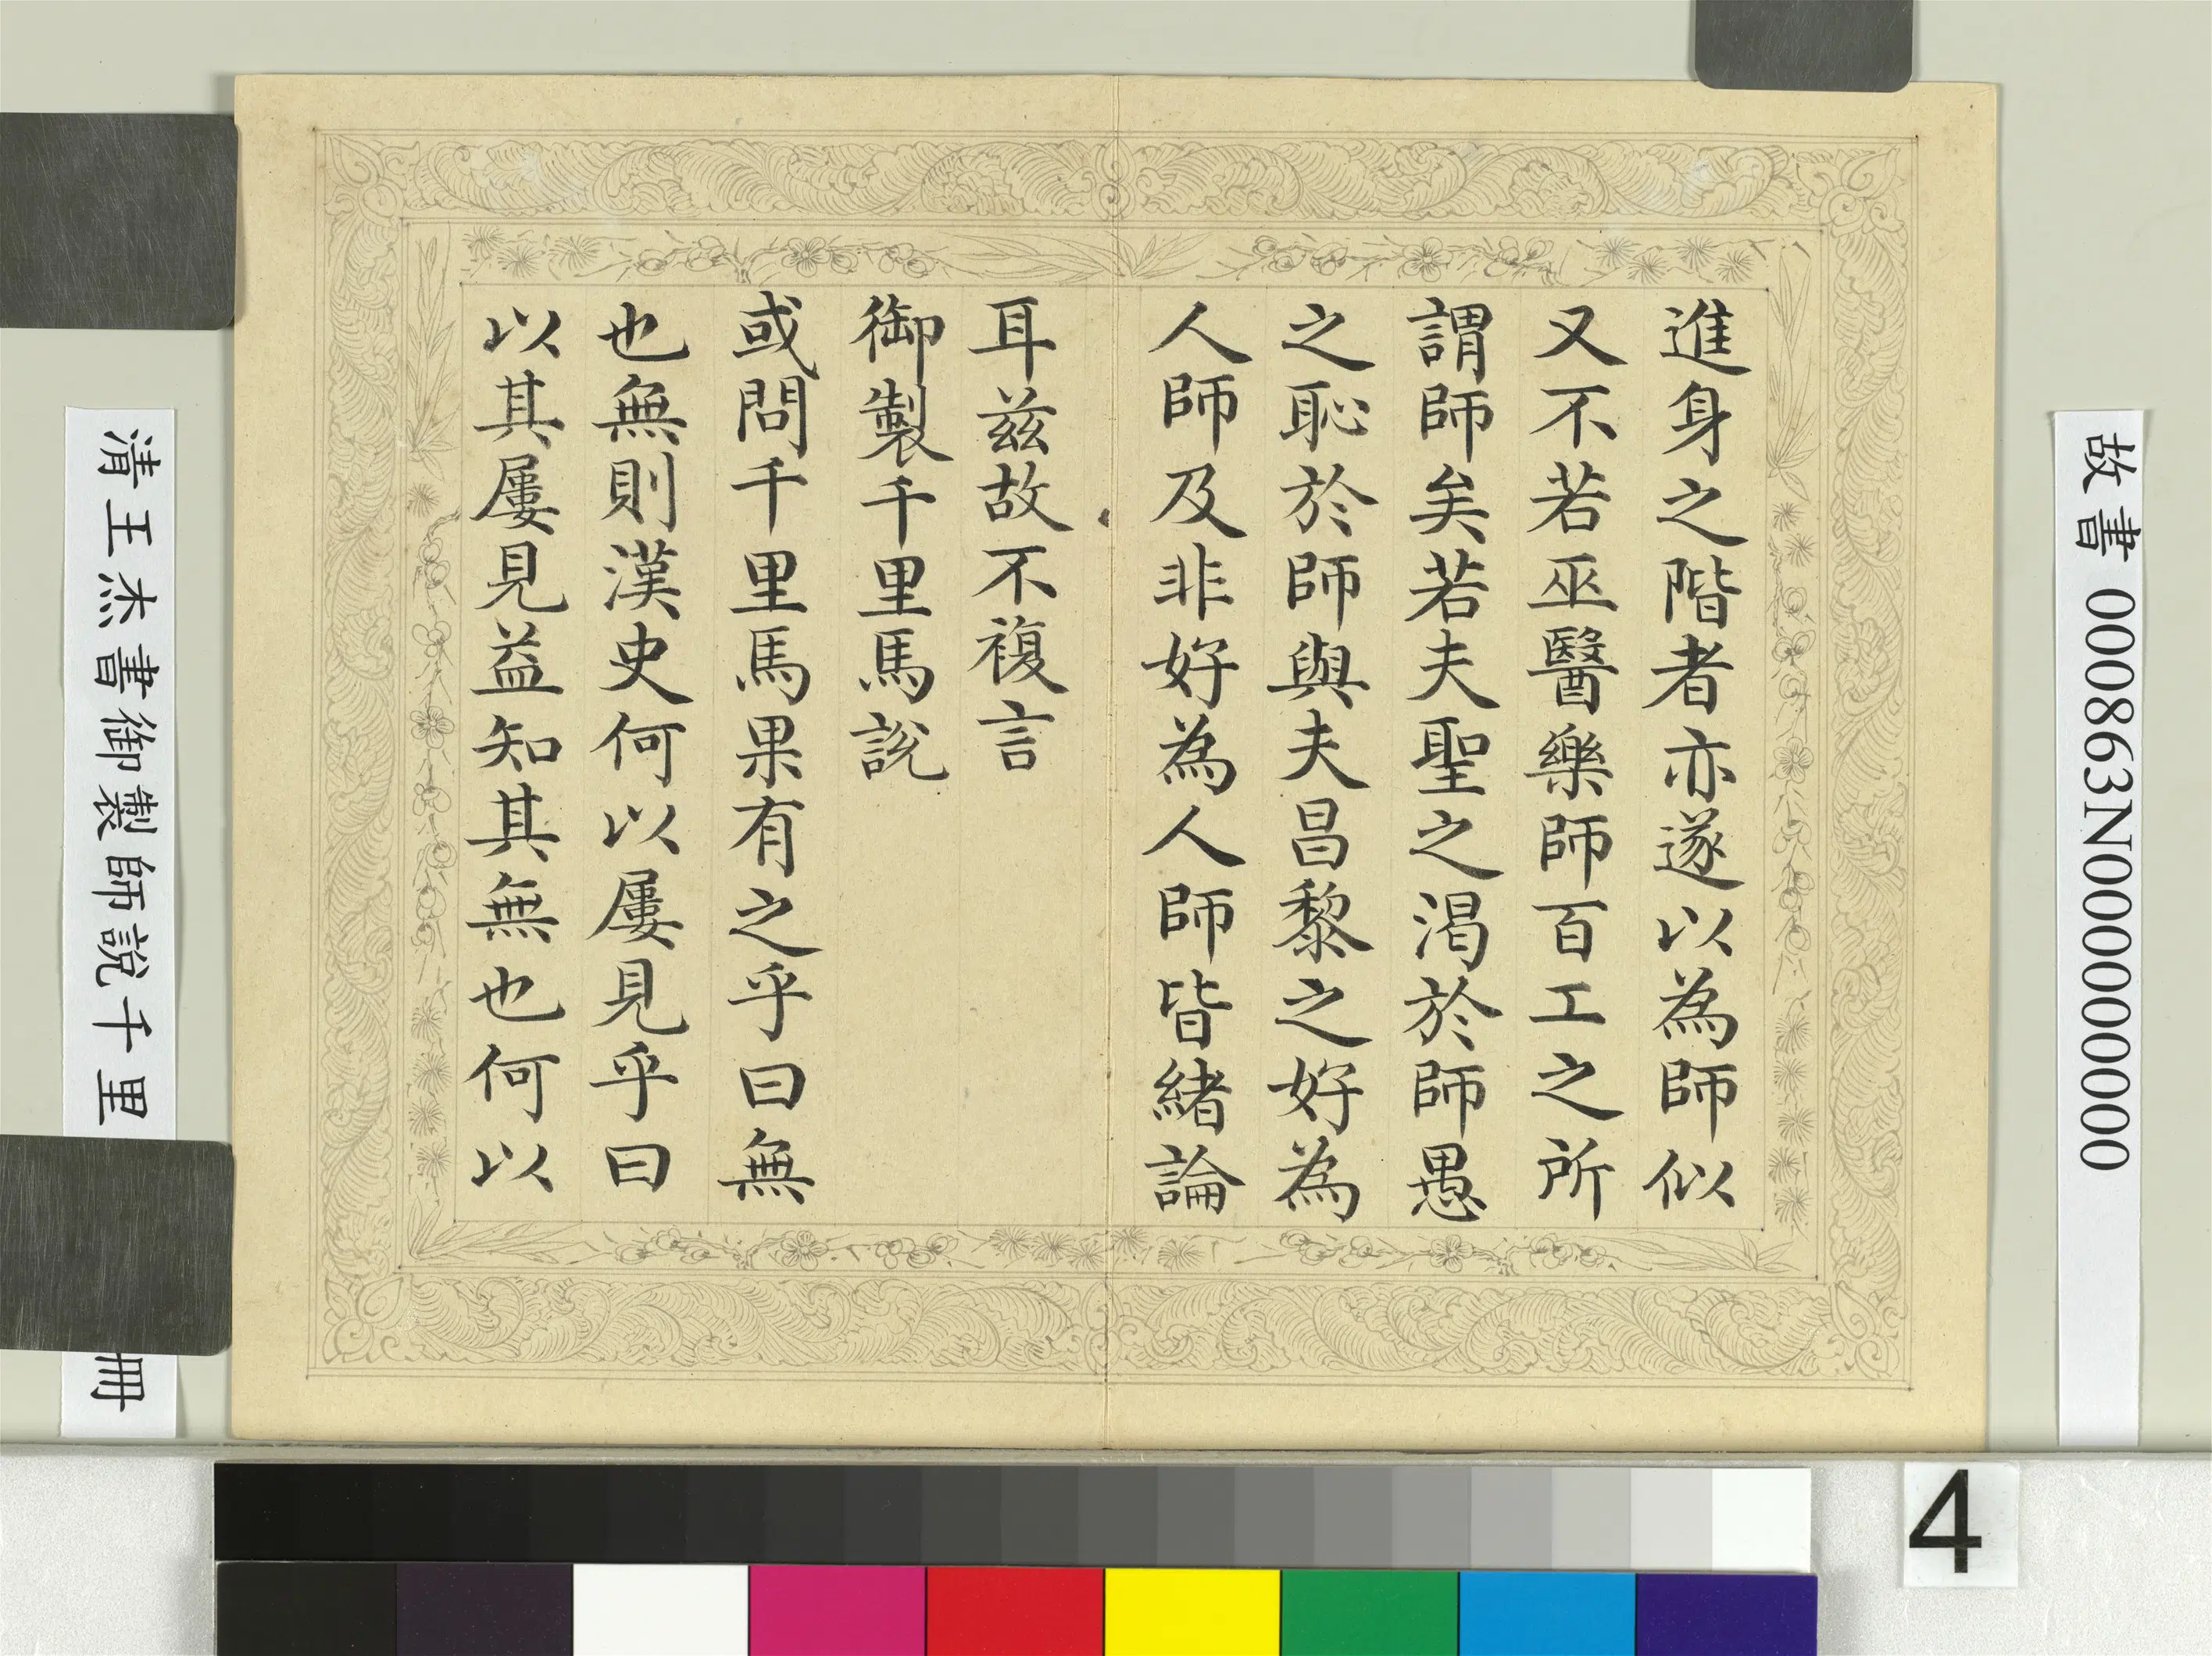 進身之階者亦遂以為師似
又不若巫醫樂師百工之所
謂師矣若夫聖之渴於師愚
之恥於師與夫昌黎之好為
人師及非好為人師皆緒論
耳茲故不複言
御製千里馬說
或問千里馬果有之乎曰無
也無則漢史何以屢見乎曰
以其屢見益知其無也何以
故書 000863N000000000
清王杰書御製師說千里
冊
4